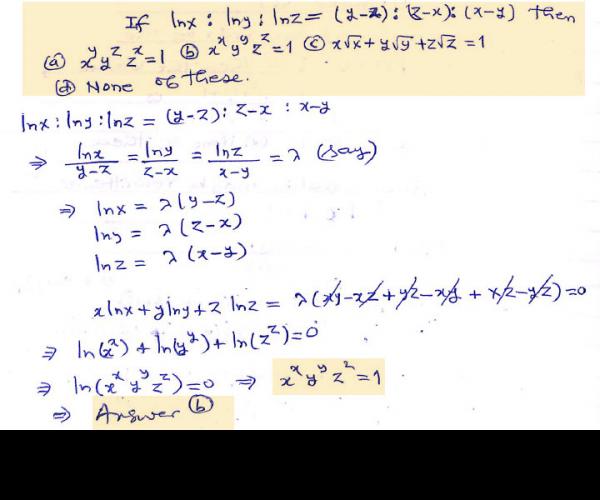 If lnx : lny : lnz = (y-z) : (z-x) : (x-y) then
(a) x^y y^z z^x = 1 (b) x^x y^y z^z = 1 (c) x√x + y√y + z√z = 1
(d) None of these.
lnx : lny : lnz = (y-z) : z-x : x-y
⇒ lnx/(y-z) = lny/(z-x) = lnz/(x-y) = λ (say)
⇒ lnx = λ(y-z)
lny = λ(z-x)
lnz = λ(x-y)
xlnx + ylny + z lnz = λ(xy - xz + yz - xy + xz - yz) = 0
⇒ ln(x^x) + ln(y^y) + ln(z^z) = 0
⇒ ln(x^x y^y z^z) = 0 ⇒ x^x y^y z^z = 1
⇒ Answer (b)